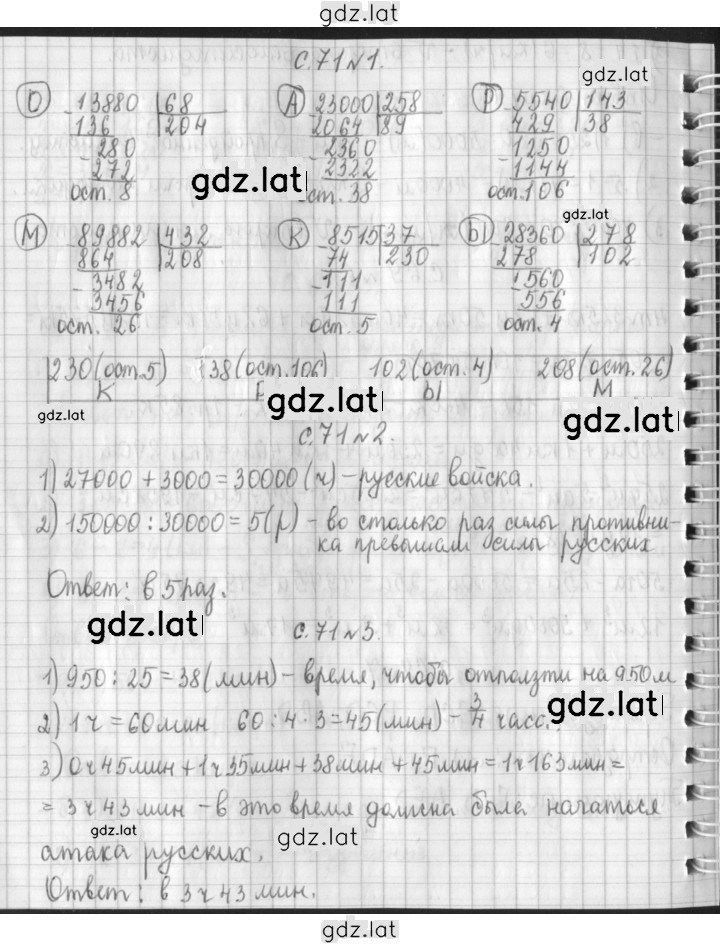 gdz.lat
с.71 №1.
gdz.lat
О 13880 | 68 А 23000 | 258 Р 5540 | 143
136 204 2064 89 429 38
280 2360 1250
272 2322 1144
ост. 8 ост. 38 ост. 106
gdz.lat
gdz.lat
М 89882 | 432 К 8515 | 37 Ы 28360 | 278
864 208 74 230 278 102
3482 111 1560
3456 111 556
ост. 26 ост. 5 ост. 4
230 (ост.5) 38 (ост.106) 102 (ост. 4) 208 (ост. 26)
К Ы М
gdz.lat gdz.lat gdz.lat
с.71 №2.
1) 27000 + 3000 = 30000 (ч) – русские войска.
2) 150000 : 30000 = 5 (р) – во столько раз силы противни-
ка превышали силы русских
Ответ: в 5 раз.
gdz.lat
с.71 №3.
1) 950 : 25 = 38 (мин) – время, чтобы отползти на 950 м
gdz.lat
2) 1 ч = 60 мин 60 : 4 · 3 = 45 (мин) – 3/4 часа.
3) 0 ч 45 мин + 1 ч 35 мин + 38 мин + 45 мин = 1 ч 163 мин =
= 3 ч 43 мин – в это время должна была начаться
gdz.lat gdz.lat
атака русских.
Ответ: в 3 ч 43 мин.
gdz.lat